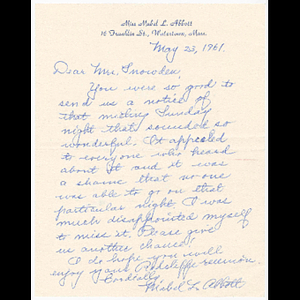 Miss Mabel L. Abbott
16 Franklin St., Watertown, Mass.
May 23, 1961.
Dear Mrs. Snowden,
You were so good to
send us a notice of
that meeting Sunday
night that sounded so
wonderful. It appealed
to everyone who heard
about it and it was
a shame that no one
was able to go on that
particular night. I was
much disappointed myself
to miss it. Please give
us another chance!
I do hope you will
enjoy your Radcliffe reunion.
Cordially,
Mabel L. Abbott